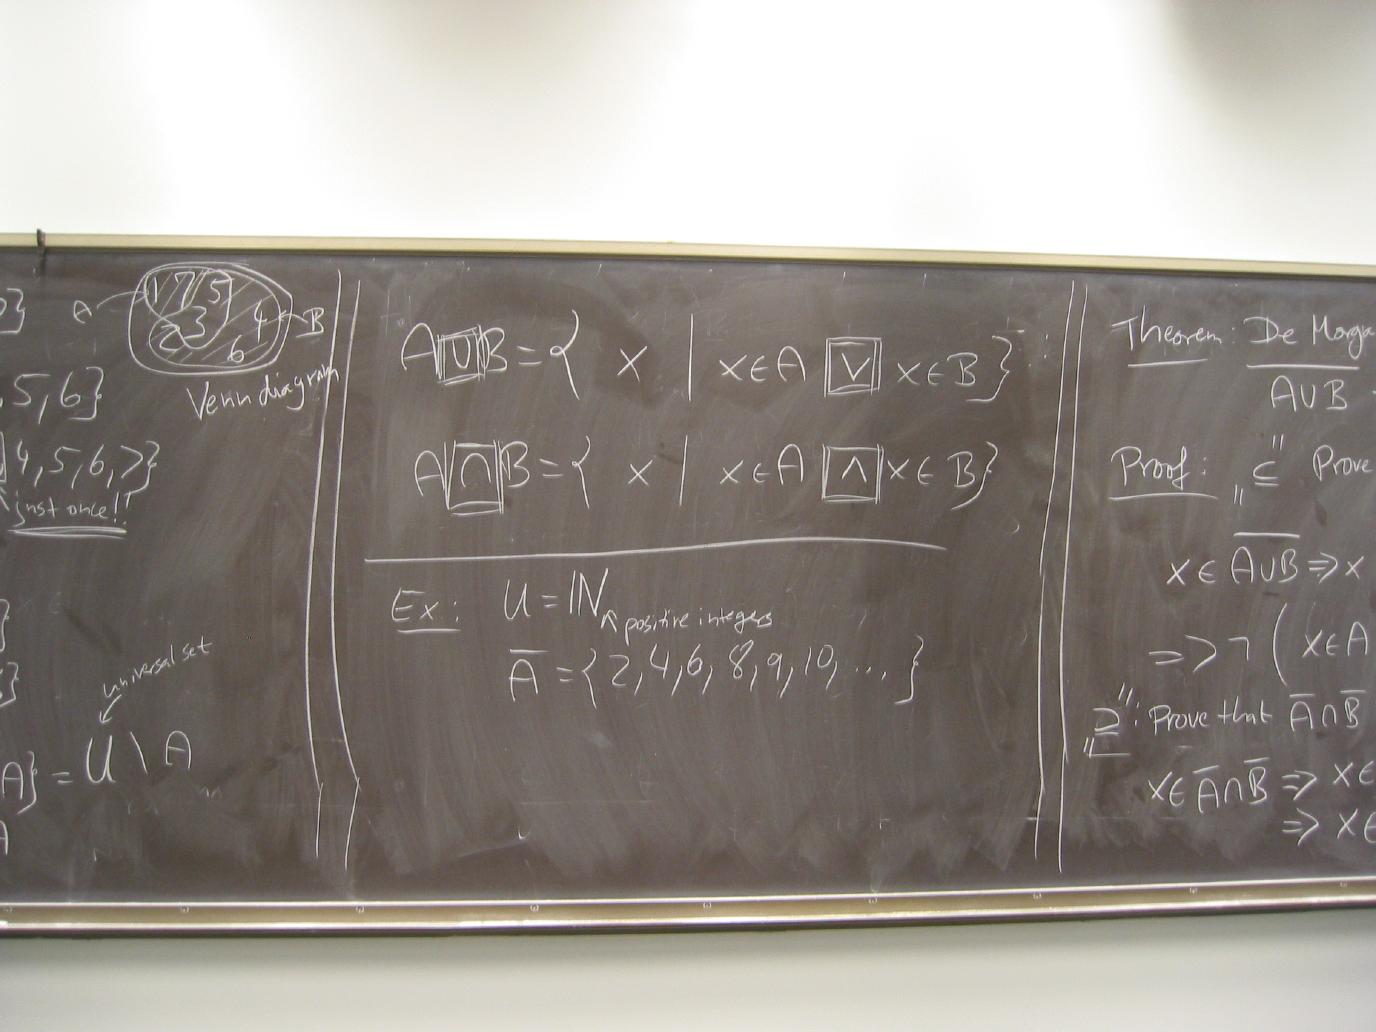 A 1 7 5 2 3 4 6 B
Venn diagram
5, 6}
4, 5, 6, 7}
just once!!
universal set
A} = U \ A
A
A ∪ B = { x | x ∈ A ∨ x ∈ B }
A ∩ B = { x | x ∈ A ∧ x ∈ B }
Ex: U = ℕ
↖ positive integers
A̅ = {2, 4, 6, 8, 9, 10, ... }
Theorem: De Morga
A∪B
Proof: "⊆" Prove
x ∈ A∪B̅ ⇒ x
⇒ ¬ ( x ∈ A
"⊇": Prove that A̅ ∩ B̅
x ∈ A̅ ∩ B̅ ⇒ x ∈
⇒ x ∈